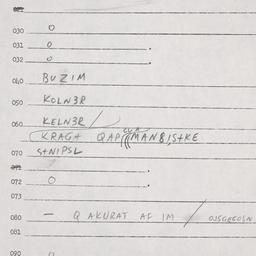 030 0
031 0
032 0
040 BUZIM
050 KOLN3R
060 KELN3R /
KRAGT QAP MAN8,STKE
070 STNIPSL
071
072 0
073
080 — Q AKURAT AF IM /
081
090